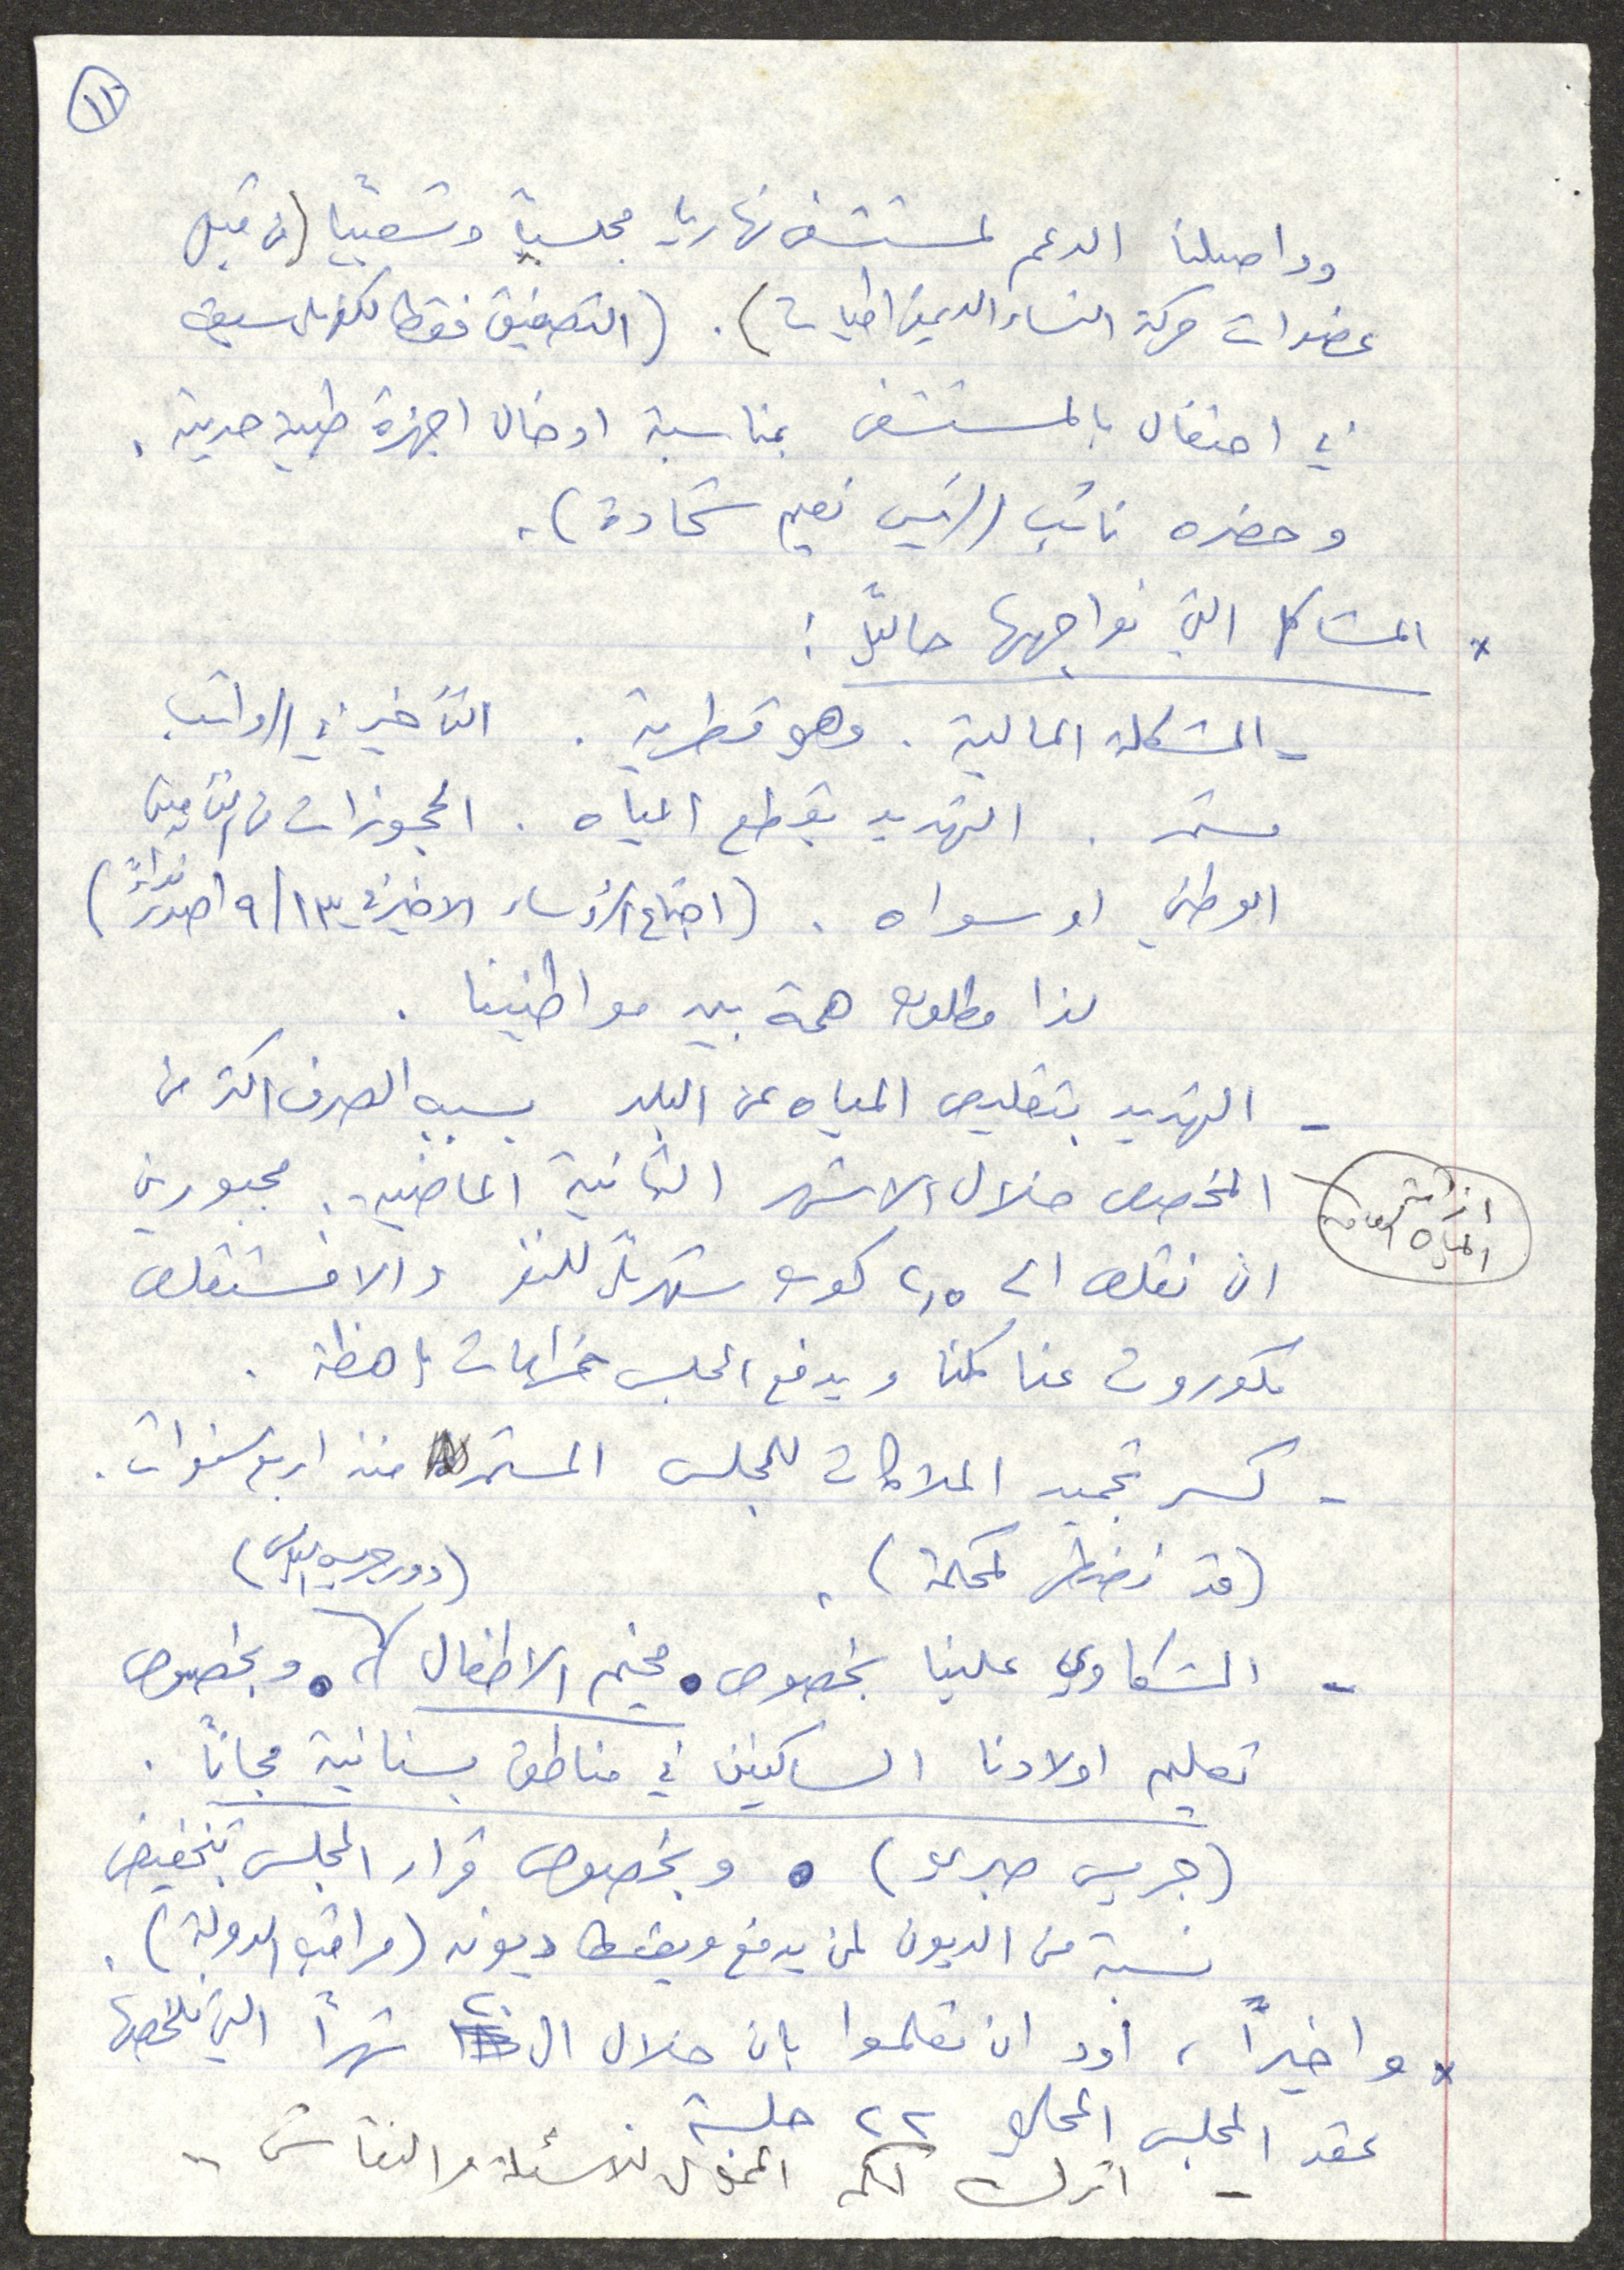 ١١
وواصلنا الدعم لمستشفى نهاريا مجلسياً وشعبياً (من قبل
عضوات حركة النساء الديمقراطيات). (التصفيق فقط لكفر ياسيف
في احتفال بالمستشفى بمناسبة ادخال اجهزة طبية حديثة.
وحضره نائب الرئيس نعيم شحادة).
× المشاكل التي نواجهها حالياً:
- المشكلة المالية. وهو قطرية. التأخير في الرواتب
مستمر. التهديد بقطع المياه. الحجوزات من التأمين
الوطني او سواه. (اجتماع الرؤساء الاخير في ٩/١٣ اصدر نداءً)
لذا مطلوب همة بين مواطنينا.
- التهديد بتقليص المياه عن البلد بسبب الصرف اكثر من
المخصص خلال الاشهر الثمانية الماضية. مجبورين
ازمة المياه العامة
ان نقلص الى ٢,٥ كوب شهرياً للنفر والا فستقلص
مكوروت عنا كلنا ويدفع المجلس غرامات باهظة.
- كسر تجميد الملاكات للمجلس المستمر منذ اربع سنوات.
(قد نضطر لمحكمة).
(دور جريس الياس)
- الشكاوي علينا بخصوص • مخيم الاطفال، • وبخصوص
تعليم اولادنا الساكنين في مناطق بستانية مجاناً.
(جريس صبري) • وبخصوص قرار المجلس بتخفيض
نسبة من الديون لمن يدفع ويقسط ديونه (مراقب الدولة).
× واخيراً، اود ان تعلموا بان خلال ال ٢٠ شهراً التي نلخصها
عقد المجلس المحلي ٢٢ جلسة.
- اترك لكم المجال للاسئلة والنقاش